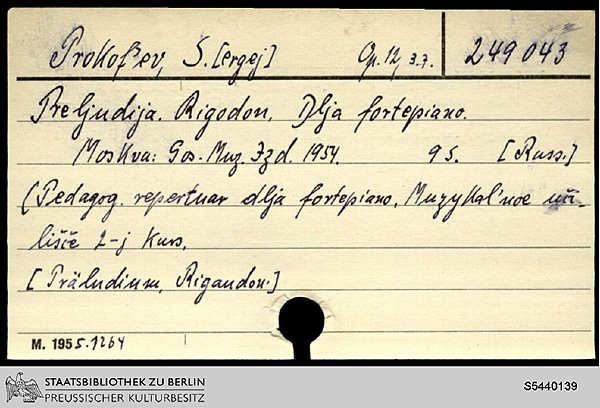 Prokof'ev, S.[ergej] Op. 12, 3.7. 249 043
Preljudija. Rigodon. Dlja fortepiano.
Moskva: Gos. Muz. Izd. 1954. 9 S. [Russ.]
(Pedagog. repertuar dlja fortepiano. Muzykal'noe uči-
lišče 2-j kurs.
[Präludium, Rigaudon.]
M. 1955.1264
STAATSBIBLIOTHEK ZU BERLIN
PREUSSISCHER KULTURBESITZ
S5440139